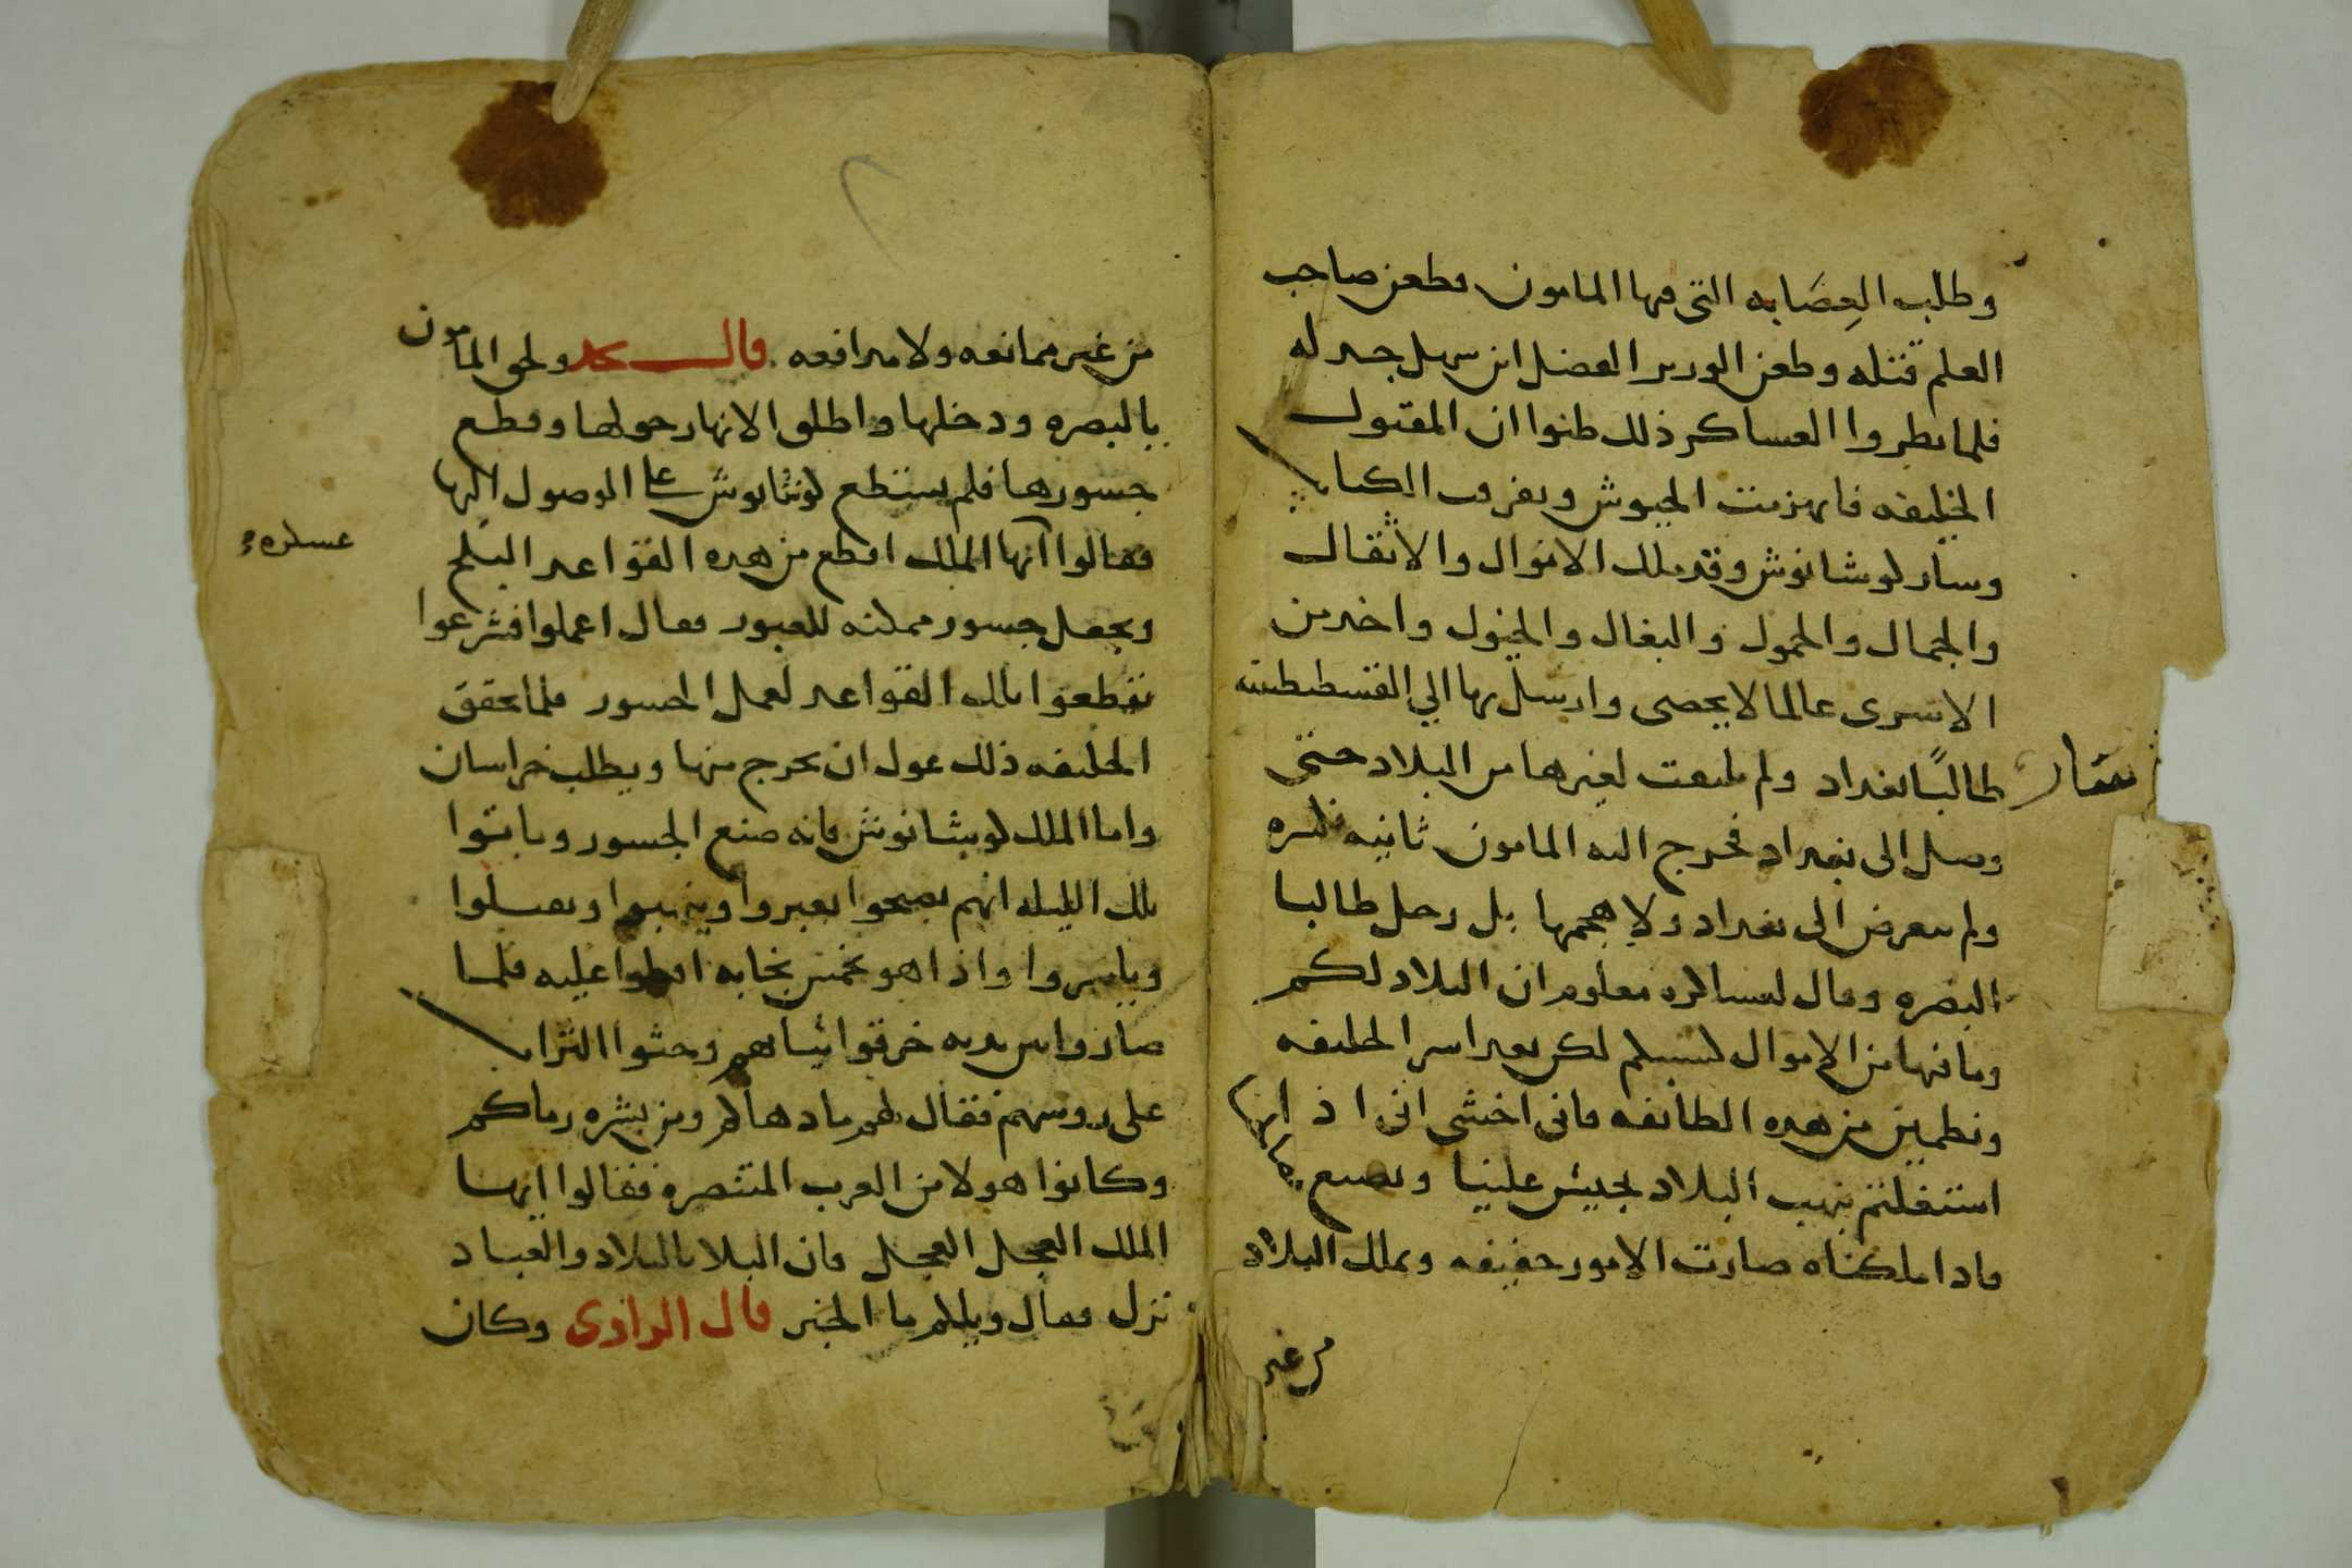 وطلب العِصَابه التي فيها المامون وطعن صاحب
العلم قتله وطعن الوزير الفضل ابن سهل جدله
فلما نظروا العساكر ذلك ظنوا ان المقتول
الخليفه فانهزمت الجيوش وتفرقت الكتاب
وسار لوشانوش وقد ملك الاموال والاثقال
والجمال والحمول والبغال والخيول واخد من
الاسرى عالما لا يحصى وارسل بها الي القسطنطنيه
وسار طالبًا بغداد ولم يلتفت لغيرها من البلاد حتى
وصل الى بغداد فخرج اليه المامون ثانيه
ولم يتعرض الى بغداد ولا هجمها بل رحل طالبا
البصره وقال لعساكره معلوم ان البلاد لكم
وما فيها من الاموال لسبيلكم لكن بعد اسر الخليفه
ونطمين من هده الطائفه فاني اخشى اني اذا
استغلتم بنهب البلاد يجيش علينا ونصيع
فادا ملكناه صارت الامور حفيفه ونملك البلاد
من غير
من غير ممانعه ولا مدافعه قال ولحق المامون
بالبصره ودخلها واطلق الانهار حولها وقطع
جسورها فلم يستطع لوشانوش على الوصول اليها
فقالوا ايها الملك اقطع من هده القواعد البلح
عسكره
ونجعل جسور ممكنه للعبور فقال اعملوا فشرعوا
تقطعوا تلك القواعد لعمل الجسور فلما تحقق
الخليفه ذلك عول ان يخرج منها ويطلب خراسان
واما الملك لوشانوش فانه صنع الجسور وباتوا
تلك الليله انهم يصبحوا يعبروا وينهبوا ويقتلوا
وياسروا واذا هو بخمسين نجابه اقبلوا عليه فلما
صاروا بين يديه خرقوا ثيابهم وحثوا التراب
على روسهم فقال لهم ما دهاكم ومن بشره رماكم
وكانوا هولا من العرب المتنصره فقالوا ايها
الملك العجل العجل فان البلا بالبلاد والعباد
نزل فقال ويلكم ما الخبر قال الراوى وكان